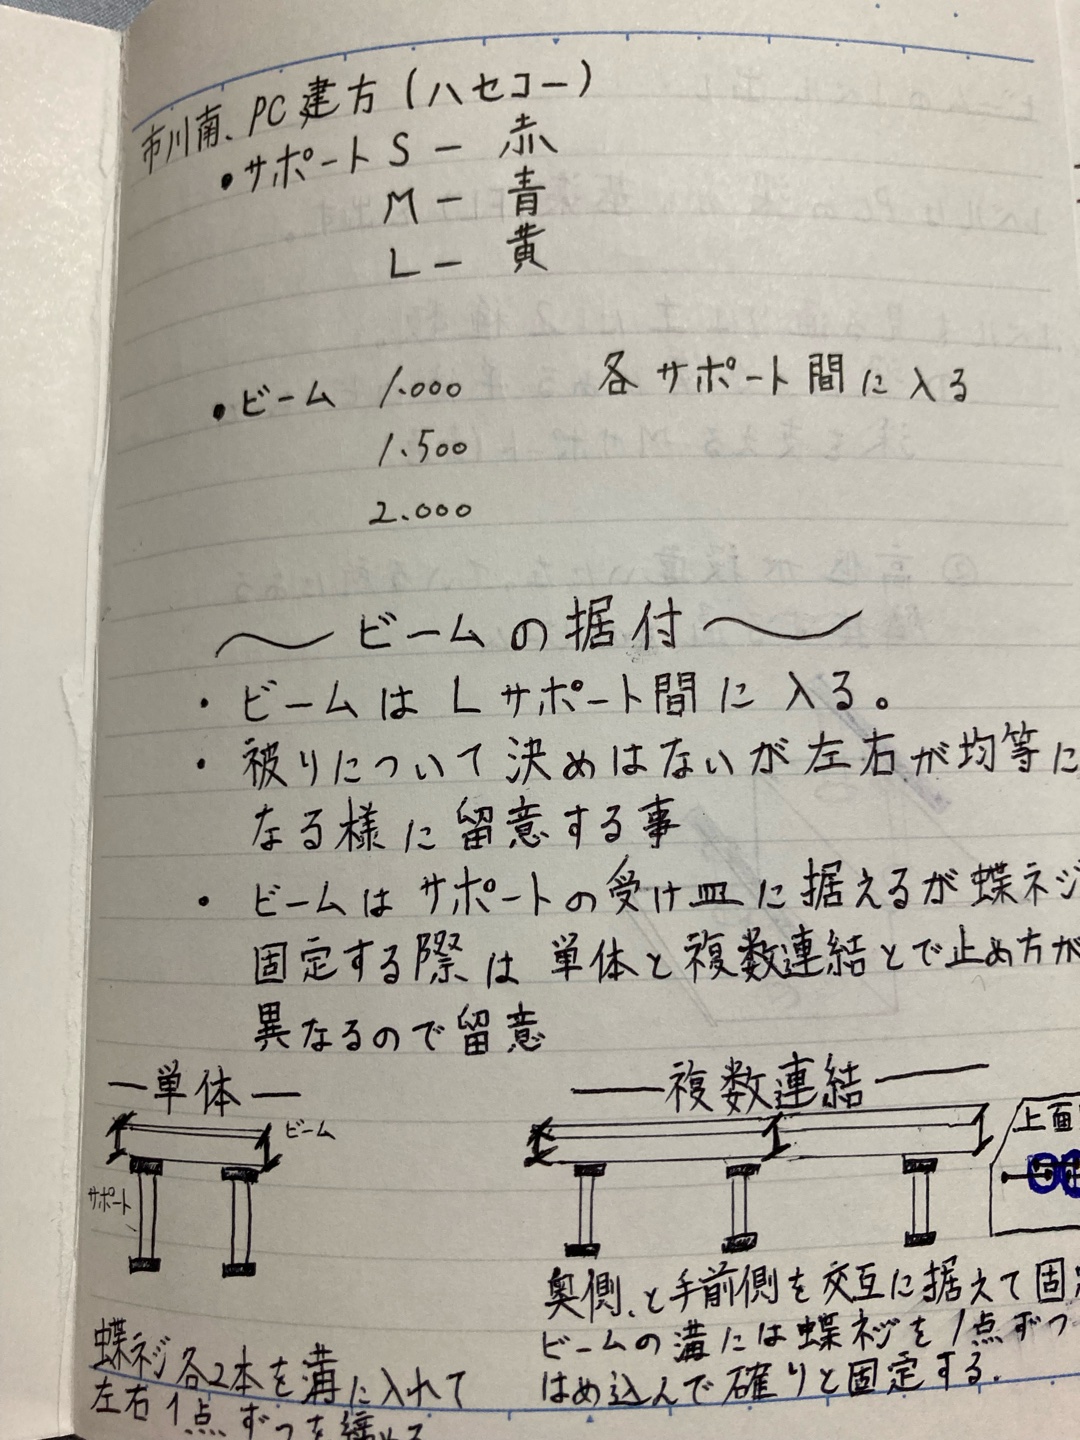 市川南、PC建方(ハセコー)
•サポートS－赤
M－青
L－黄
•ビーム 1.000 各サポート間に入る
1.500
2.000
～ビームの据付～
・ビームはLサポート間に入る。
・被りについて決めはないが左右が均等に
なる様に留意する事
・ビームはサポートの受け皿に据えるが蝶ネジ
固定する際は単体と複数連結とで止め方が
異なるので留意
—単体—
ビーム
サポート
蝶ネジ各2本を溝に入れて
左右1点ずつを締める
—複数連結—
上面
奥側、と手前側を交互に据えて固
ビームの溝には蝶ネジを1点ずつ
はめ込んで確りと固定する.